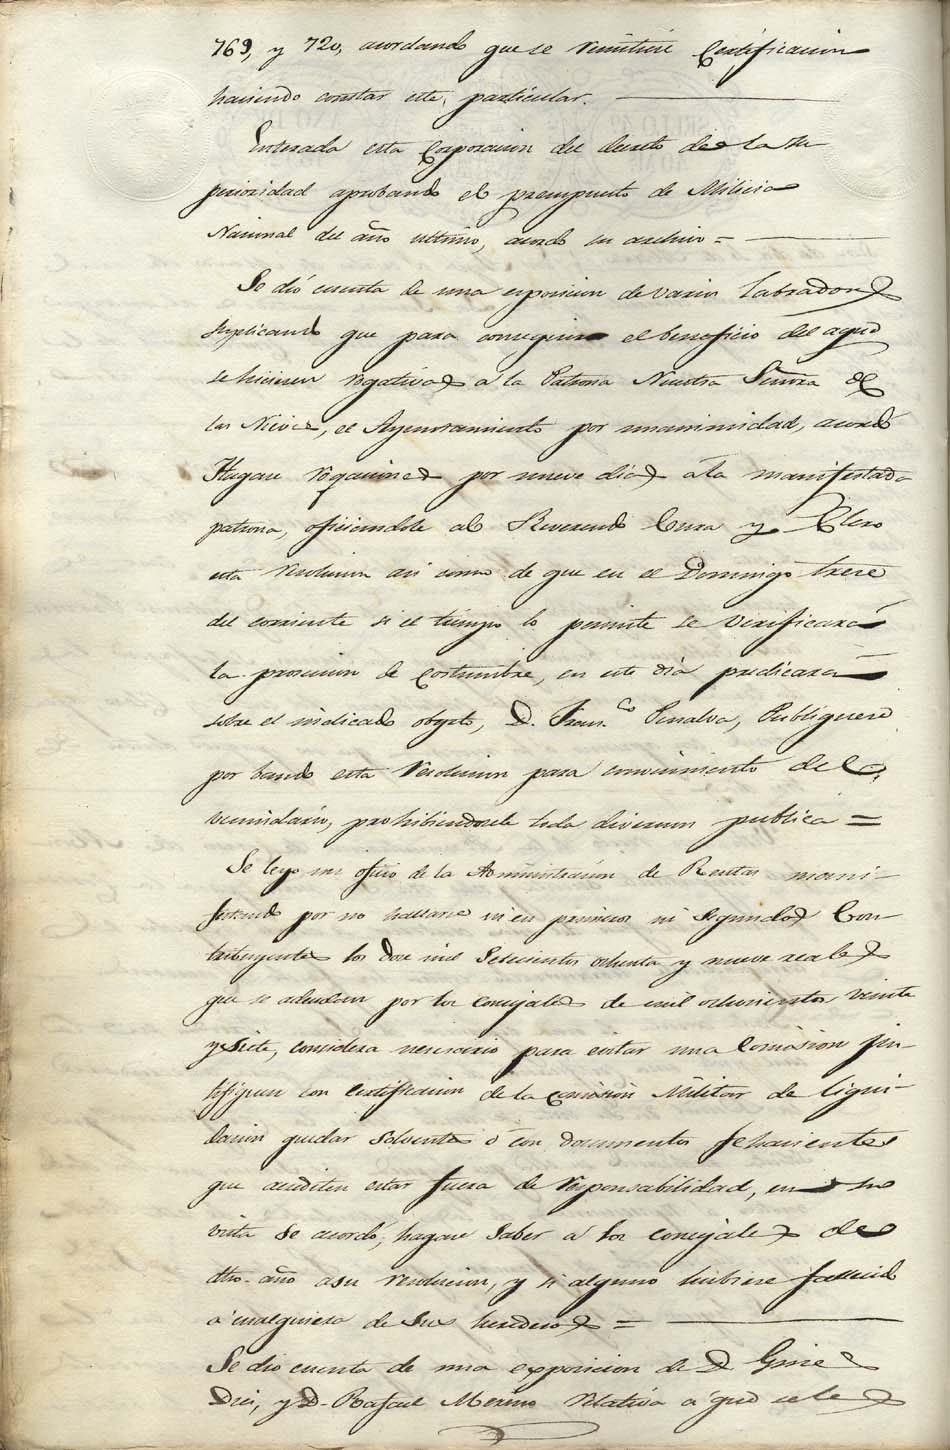 769, y 720, acordando que se remitiese Certificacion
haciendo constar este particular.
Enterada esta Corporacion del decreto de la Su
perioridad aprobando el presupuesto de Milicia
Nacional del año ultimo, acordo su archivo =
Se dió cuenta de una esposicion de varios Labradores
suplicando que para conseguir el beneficio del agua
se hiciesen rogativas a la Patrona Nuestra Señora de
las Nieves, el Ayuntamiento por unanimidad, acordó
Hagase rogaciones por nueve dias a la manifestada
patrona, oficiandole al Reverendo Cura y Clero
esta resolucion asi como de que en el Domingo trece
del corriente si el tiempo lo permite se verificará
la procesion de costumbre, en este dia predicará
sobre el indicado objeto, D. Fran.co Penalva, Publiquese
por bando esta resolucion para conocimiento del
vecindario, prohibiendosele toda diversion publica =
Se leyo un oficio de la Administracion de Rentas mani-
festando por no hallarse en primeros ni segundos Con-
tribuyentes los doce mil Setecientos ochenta y nueve reales
que se adeudan por los concejales de mil ochocientos veinte
y siete, considera necesario para evitar una Comision jus-
tifiquen con certificacion de la comision Militar de liqui-
dacion quedar solventes ó con documentos fehacientes
que acrediten estar fuera de responsabilidad, en su
vista se acordó, hagase saber a los concejales de
dho. año a su resolucion, y si alguno hubiese fallecido
a cualquiera de sus herederos =
Se dio cuenta de una exposicion de D.
y D. Rafael Merino relativa a que se le